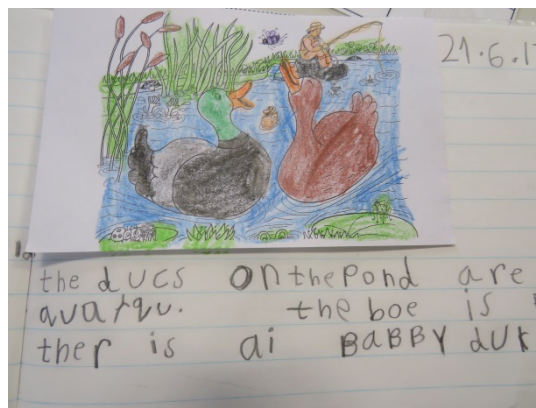 21.6.1
the ducs on the pond are
the boe is
ther is ai BaBBY duk